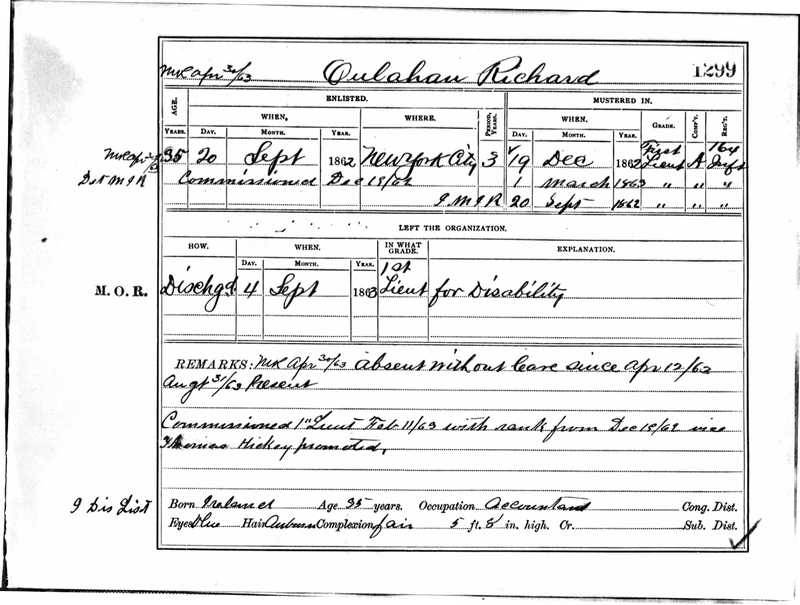 MR Apr 30/63 Oulahan Richard 1299
AGE. ENLISTED. MUSTERED IN.
WHEN, WHERE. PERIOD, YEARS. WHEN. GRADE. COMP'Y. REG'T.
YEARS. DAY. MONTH. YEAR. DAY. MONTH. YEAR. First 164
35 20 Sept 1862 New York City 3 19 Dec 1862 Lieut A Inft
Det M I R Commissioned Dec 18/62 1 March 1863 " " "
I M I R 20 Sept 1862 " " "
LEFT THE ORGANIZATION.
HOW. WHEN. IN WHAT GRADE. EXPLANATION.
DAY. MONTH. YEAR. 1st
M. O. R. Dischgd. 4 Sept 1863 Lieut for Disability
REMARKS: MR Apr 30/63 absent without leave since Apr 12/63
Augt 31/63 Present
Commissioned 1" Lieut Feb 11/63 with rank from Dec 18/62 vice
Thomas Hickey promoted,
9 Dis List Born Ireland Age 35 years. Occupation Accountant Cong. Dist.
Eyes Blue Hair Auburn Complexion fair 5 ft. 8 in. high. Cr. Sub. Dist.